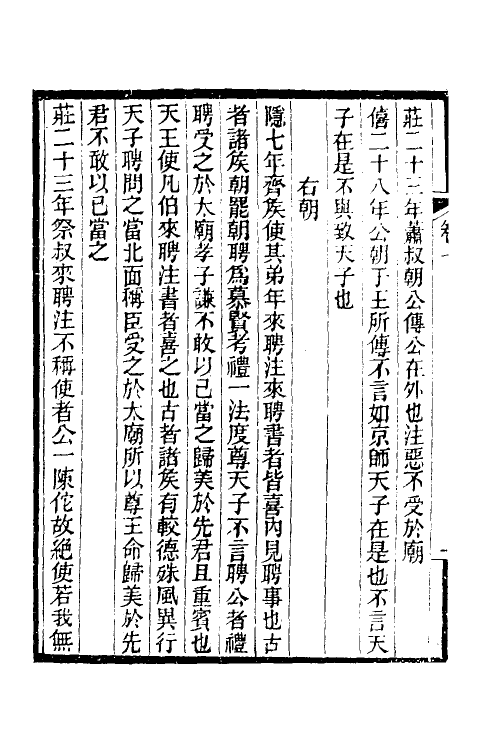 莊二十三年蕭叔朝公傳公在外也注惡不受於廟
僖二十八年公朝于王所傳不言如京師天子在是也不言天
子在是不與致天子也
右朝
隱七年齊矦使其弟年來聘注來聘書者皆喜內見聘事也古
者諸矦朝罷朝聘爲慕賢考禮一法度尊天子不言聘公者禮
聘受之於太廟孝子謙不敢以已當之歸美於先君且重賓也
天王使凡伯來聘注書者喜之也古者諸矦有較德殊風異行
天子聘問之當北面稱臣受之於太廟所以尊王命歸美於先
君不敢以已當之
莊二十三年祭叔來聘注不稱使者公一陳佗故絕使若我無